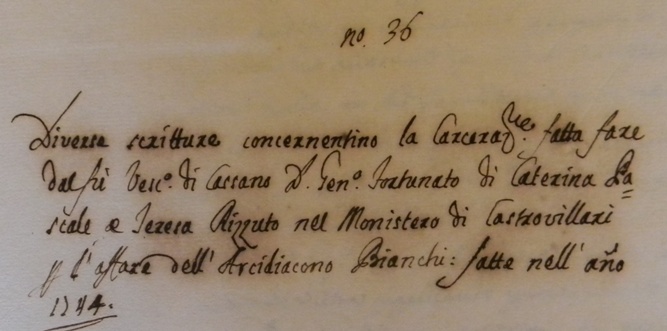 no. 36
Diverse scritture concernentino la Carceraz.ne fatta fare
dal fù Vesc.o di Cassano D. Gen.o Fortunato di Caterina Pa=
scale e Teresa Rizzuto nel Monistero di Castrovillari
p l'affare dell'Arcidiacono Bianchi: fatte nell'año
1744.